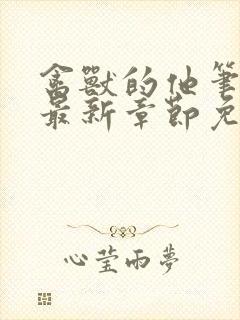 禽獸的他筆
最新章節免
心莹雨夢